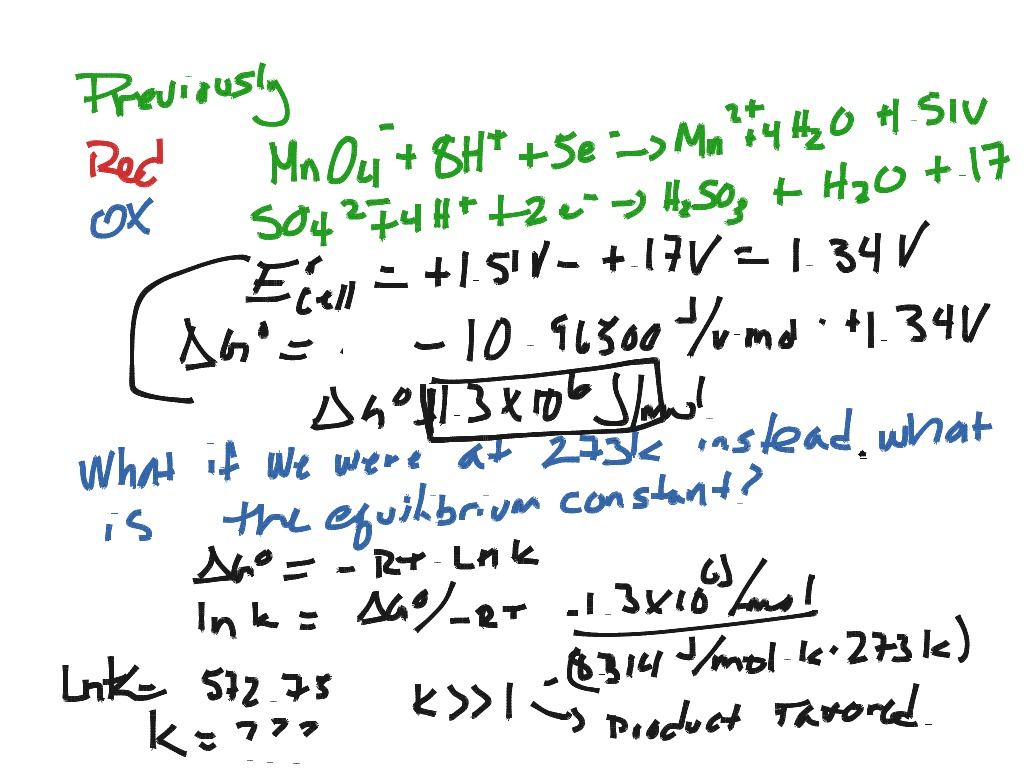 Previously
Red MnO4⁻ + 8H⁺ + 5e⁻ → Mn²⁺ + 4H2O +1.51V
OX SO4²⁻ + 4H⁺ + 2e⁻ → H2SO3 + H2O + .17
E°cell = +1.51V - +.17V = 1.34V
ΔG° = - 10 · 96500 J/v·mol · +1.34V
ΔG° 1.3 x 10⁶ J/mol
What if we were at 273K instead. what
is the equilibrium constant?
ΔG° = - RT · Ln K
ln K = ΔG°/-RT -1.3x10⁶J/mol
-(8.314 J/mol·K · 273K)
LnK= 572.75 K>>1 → product favored
K = ???